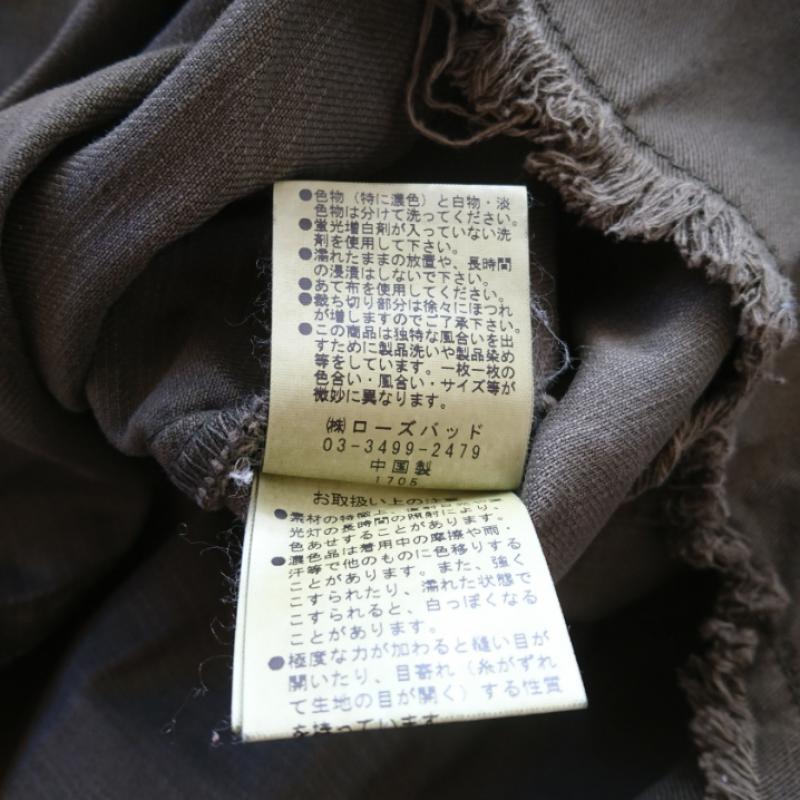 ●色物（特に濃色）と白物・淡
色物は分けて洗ってください。
●蛍光増白剤が入っていない洗
剤を使用して下さい。
●濡れたままの放置や、長時間
の浸漬はしないで下さい。
●あて布を使用してください。
●裁ち切り部分は徐々にほつれ
が増しますのでご了承下さい。
●この商品は独特な風合いを出
すために製品洗いや製品染め
等をしています。一枚一枚の
色合い・風合い・サイズ等が
微妙に異なります。
㈱ローズバッド
03-3499-2479
中国製
1705
お取扱い上の注意
●素材の特徴上、照射により、
光灯の長時間の照射により、
色あせすることがあります。
●濃色品は着用中の摩擦や雨・
汗等で他のものに色移りする
ことがあります。また、強く
こすられたり、濡れた状態で
こすられると、白っぽくなる
ことがあります。
●極度な力が加わると縫い目が
開いたり、目寄れ（糸がずれ
て生地の目が開く）する性質
を持っています